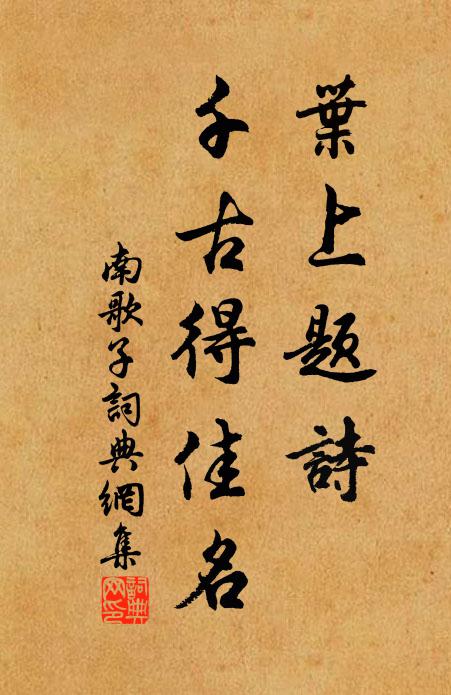 葉上題詩
千古得佳名
南歌子詞典網集
詞典网印